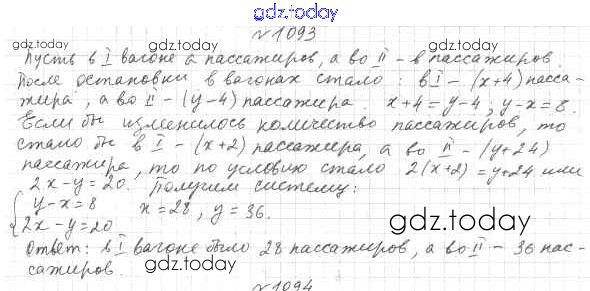 gdz.today
№1093
Пусть в I вагоне а пассажиров, а во II – в пассажиров.
gdz.today gdz.today
После остановки в вагонах стало: в I – (x+4) пасса-
жира, а во II – (y-4) пассажира. x+4=y-4; y-x=8.
Если бы изменилось количество пассажиров, то
стало бы в I – (x+2) пассажира, а во II – (y+24)
пассажира, то по условию стало 2(x+2)=y+24 или
2x-y=20. Получим систему:
{y-x=8 x=28, y=36.
2x-y=20
gdz.today
Ответ: в I вагоне было 28 пассажиров, а во II – 36 пас-
сажиров.
gdz.today
№1094